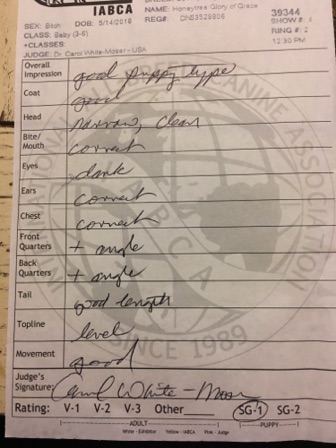 IABCA
NAME: Honeytree Glory of Grace
39344
SEX: Bitch DOB: 5/14/2018
REG#: DN53529906
SHOW #: 4
CLASS: Baby (3-6)
RING #: 2
+CLASSES:
12:30 PM
JUDGE: Dr. Carol White-Moser - USA
Overall Impression good puppy type
Coat good
Head narrow, clean
Bite/Mouth correct
Eyes dark
Ears correct
Chest correct
Front Quarters + angle
Back Quarters + angle
Tail good length
Topline level
Movement good
Judge's Signature: Carol White-Moser
Rating: V-1 V-2 V-3 Other SG-1 SG-2
ADULT PUPPY
White - Exhibitor Yellow - IABCA Pink - Judge
SINCE 1989